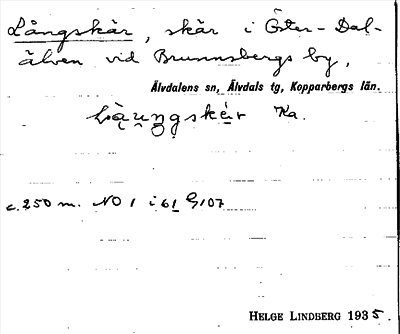 Långskär, skär i Öster-Dal-
älven vid Brunnsbergs by,
Älvdalens sn, Älvdals tg, Kopparbergs län.
Ka.
c. 250 m. NO 1 i 61 G107
HELGE LINDBERG 1935.